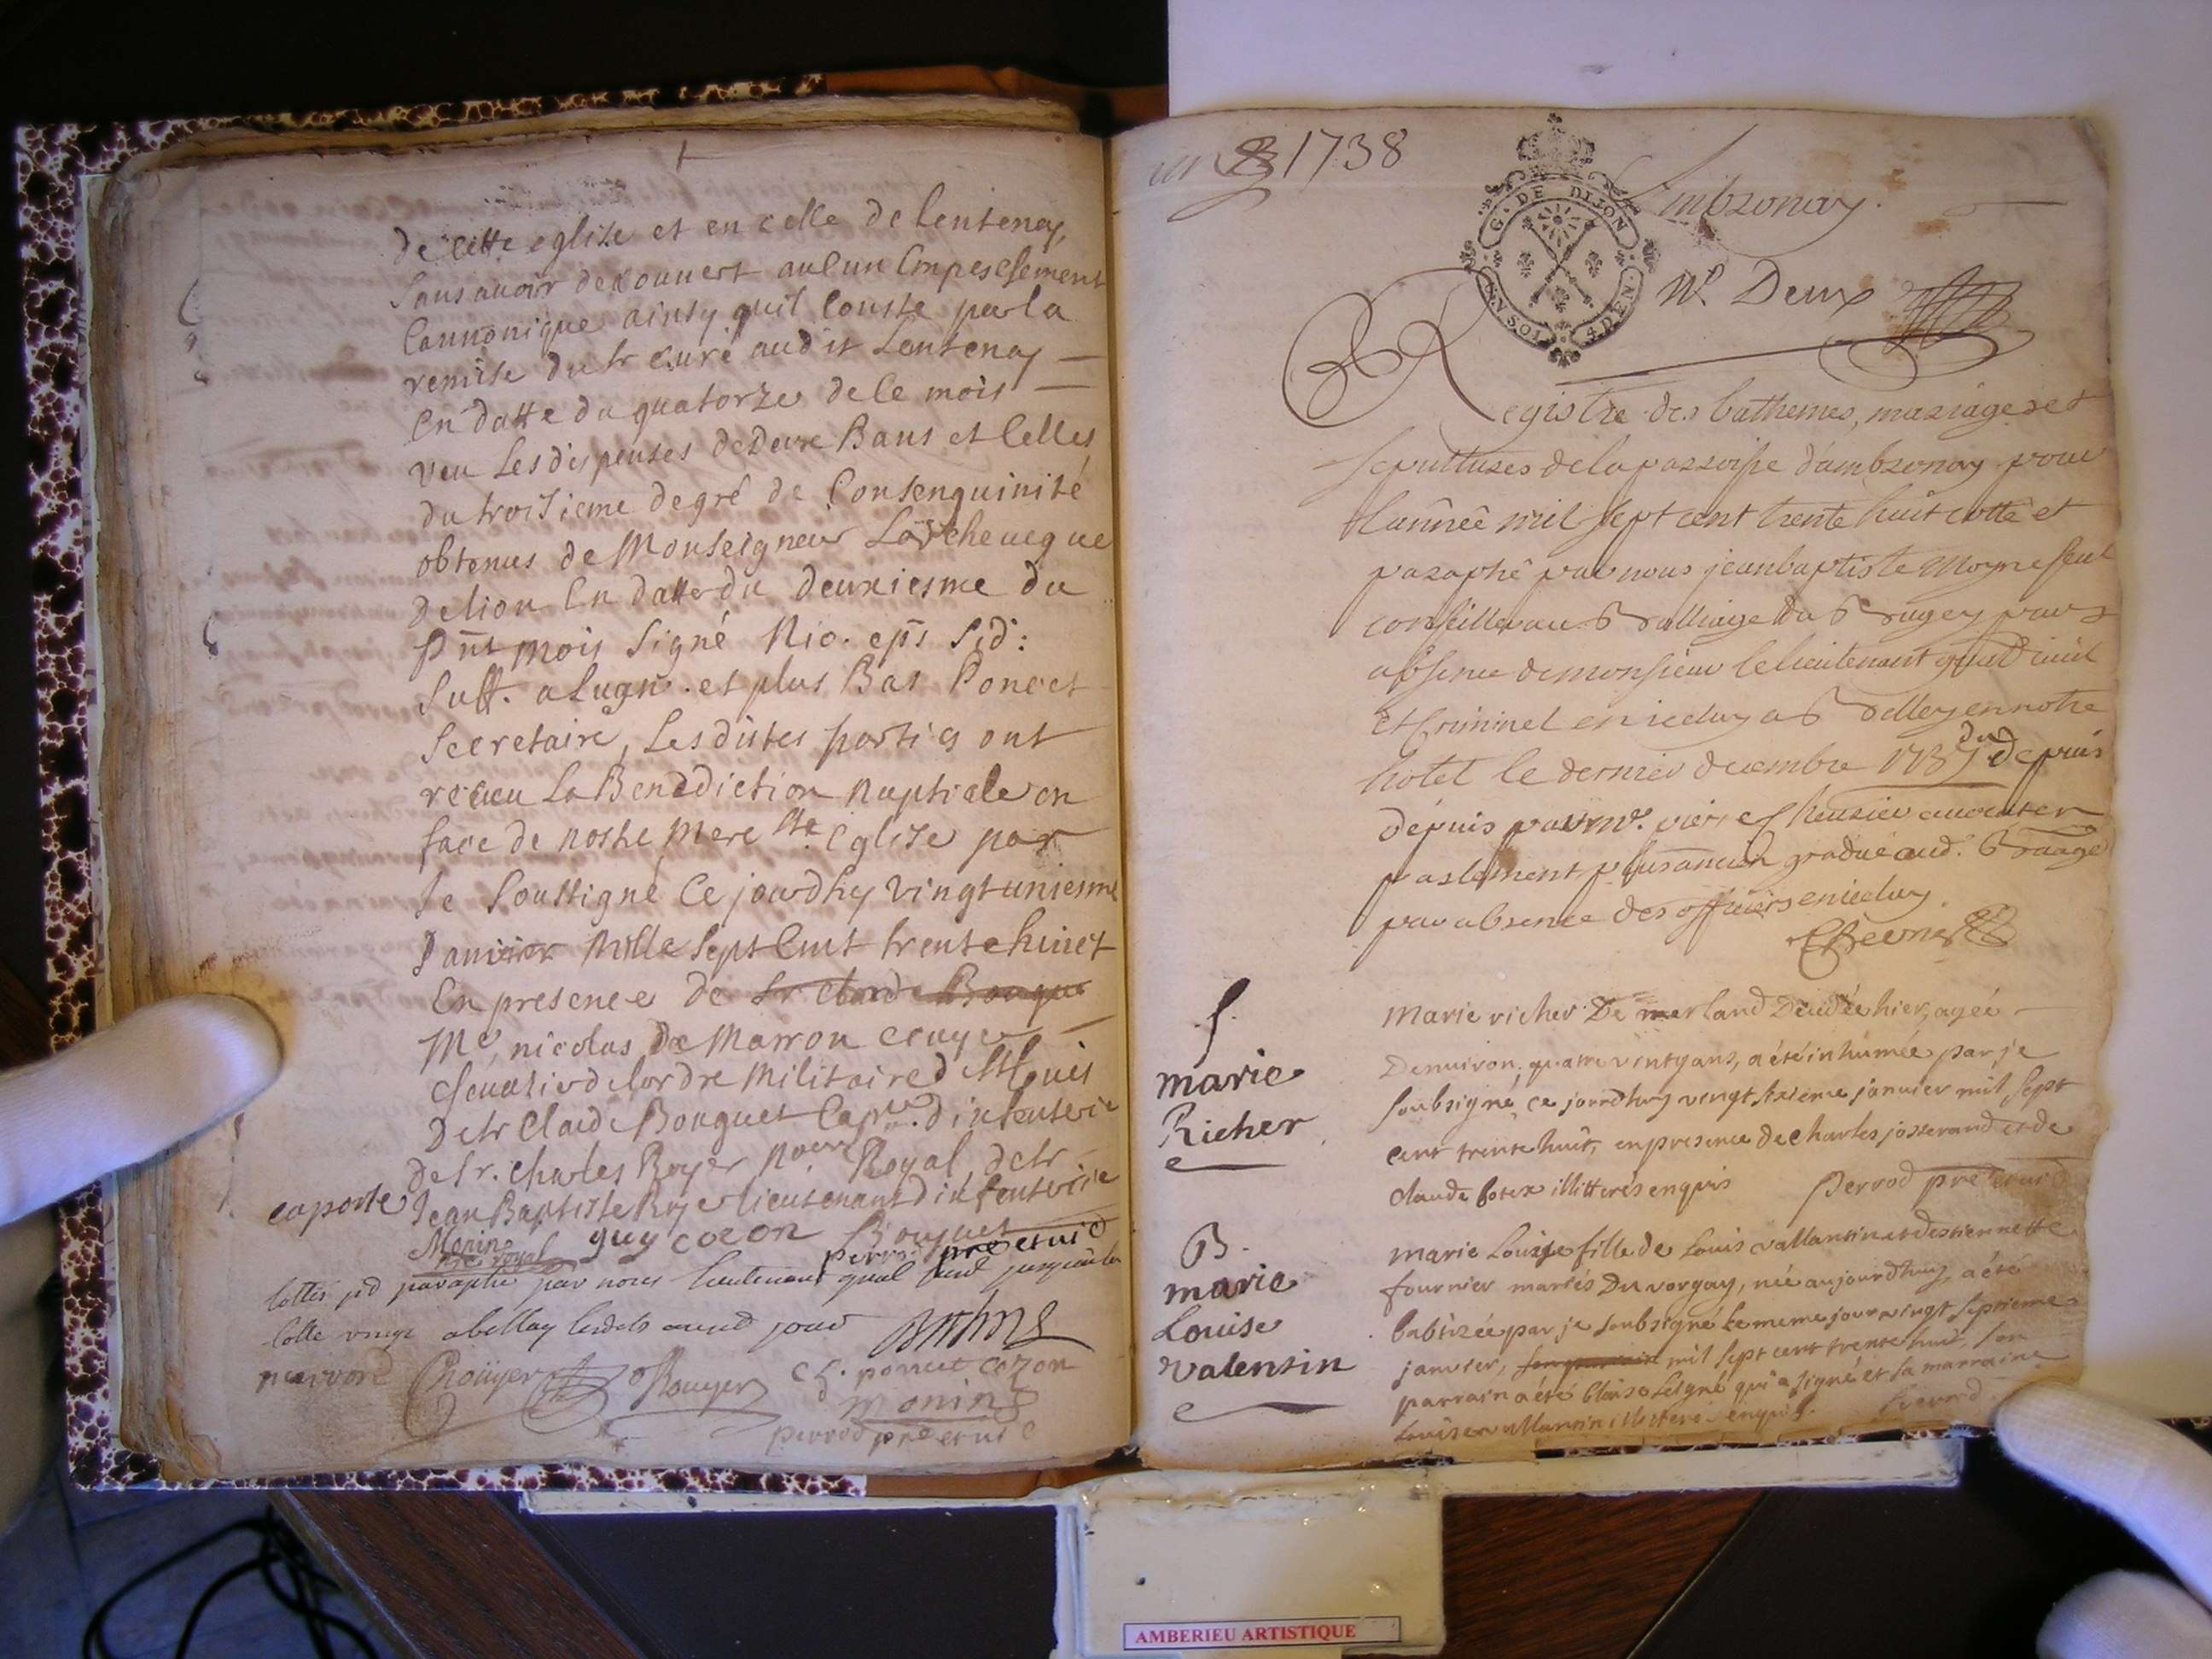 de cette eglise et en celle de Lentenay,
sans avoir decouuert aucun Empeschement
Cannonique ainsy quil Conste par la
remise du sr Curé audit Lentenay
En datte du quatorze de Ce mois
veu Les dispenses de Deux Bans et Celles
du troisieme degré de Consenguinité
obtenus de Monseigneur Larcheueque
de lion En datte du deuxiesme du
pnt mois Signé Nic. eps Sid:
Suff. a Lugn. et plus Bas Poncet
Secretaire, Les dittes parties ont
receu La Benediction nuptiale en
face de nostre mere Ste Eglise par
Je Soussigné Ce jourdhy vingtuniesme
Janvier Mille Sept Cent trente huict
En presence de sr Claude Bouque
Me, nicolas De Marron ecuyer
Cheualier de lordre Militaire de St Louis
De sr Claude Bouquet Capne. d'infenterie
de sr. charles Royer Royal, de sr
Jean Baptiste Roye lieutenant d'infenterie
Monin guy cozon Bouquet
perrod pre et vic
paraphé par nous lieutenant
Rouyer Rouyer poncet cozon
monin
perrod pre et vic
1738
Ambronay.
G. DE DIJON
No Deux
Registre des bathemes, mariages et
sepultures de la parroisse d'ambronay pour
l'année mil sept cent trente huit cotté et
paraphé par nous jean baptiste Moyne seul
conseiller au Balliage du Bugey pour
absence de monsieur le lieutenant gnal Ciuil
et Criminel en iceluy a Belley en notre
hotel le dernier decembre 1737 depuis
depuis par
parlement plus ancien gradué aud. Baage
par absence des officiers en iceluy
S.
marie
Richer
Marie richer De merland Decedée hier, agée
Denuiron quatre vintgans, a été inhumée par je
soubsigné ce jourdhuy vingt sixieme januier mil sept
cent trente huit, en presence de Charles josserand et de
claude botex illitterés enquis perrod pre et vic
B.
marie
Louise
valentin
Marie Louise fille de Louis vallantin et d'estiennette
fournier mariés Du vorgay, née aujourdhuy, a été
babtizée par je soubsigné Le meme jour vingt septieme
januier, son parrain mil sept cent trente huit, son
parrain a été qui a signé et sa marraine
Louise vallantin illitterée enquis. Perrod
AMBERIEU ARTISTIQUE